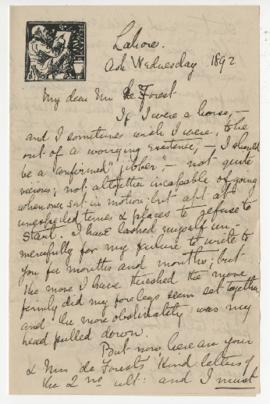 Lahore.
Ash Wednesday 1892
My dear Mr de Forest
If I were a horse, —
and I sometimes wish I were, to be
out of a worrying existence, — I should
be a "confirmed" "jibber", — not quite
vicious; not altogether incapable of going
when once set in motion: but apt at
unexpected times & places to refuse to
start. I have lashed myself un
mercifully for my failure to write to
you for months and months; but
the more I have thrashed the more
firmly did my forelegs seem set together
and the more obstinately was my
head pulled down.
But now here are your
& Mrs de Forest's kind letters of
the 2nd ult: and I must